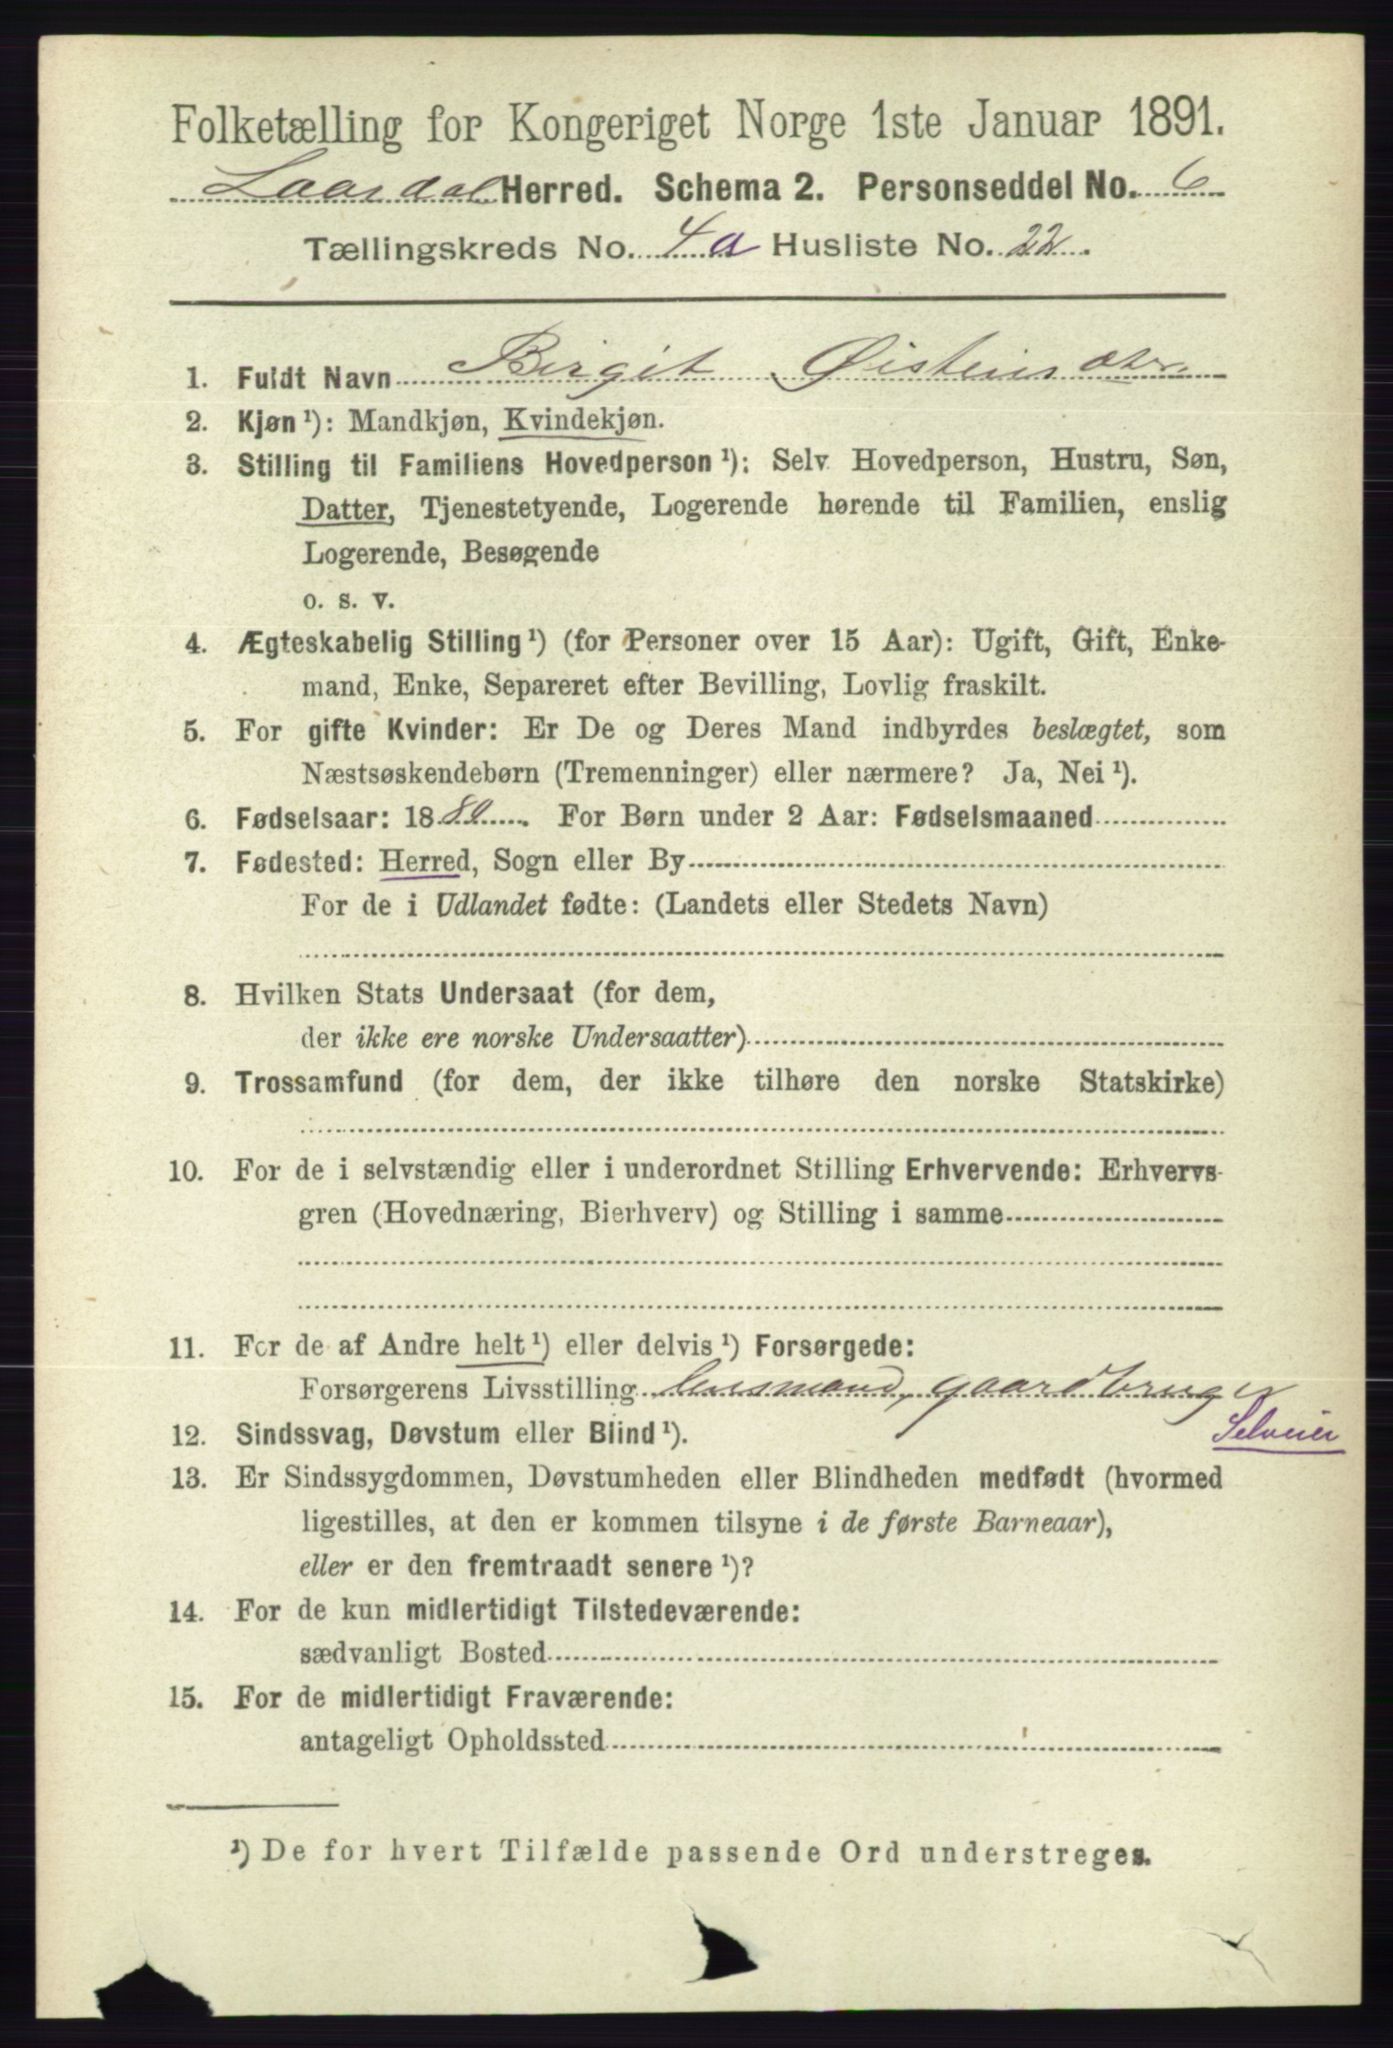 Folketælling for Kongeriget Norge 1ste Januar 1891.
Laardal Herred. Schema 2. Personseddel No. 6
Tællingskreds No. 4 a Husliste No. 22.
1. Fuldt Navn Birgit Øisteinsdtr.
2. Kjøn ¹): Mandkjøn, Kvindekjøn.
3. Stilling til Familiens Hovedperson ¹): Selv Hovedperson, Hustru, Søn,
Datter, Tjenestetyende, Logerende hørende til Familien, enslig
Logerende, Besøgende
o. s. v.
4. Ægteskabelig Stilling ¹) (for Personer over 15 Aar): Ugift, Gift, Enke-
mand, Enke, Separeret efter Bevilling, Lovlig fraskilt.
5. For gifte Kvinder: Er De og Deres Mand indbyrdes beslægtet, som
Næstsøskendebørn (Tremenninger) eller nærmere? Ja, Nei ¹).
6. Fødselsaar: 18 . For Børn under 2 Aar: Fødselsmaaned
7. Fødested: Herred, Sogn eller By
For de i Udlandet fødte: (Landets eller Stedets Navn)
8. Hvilken Stats Undersaat (for dem,
der ikke ere norske Undersaatter)
9. Trossamfund (for dem, der ikke tilhøre den norske Statskirke)
10. For de i selvstændig eller i underordnet Stilling Erhvervende: Erhvervs-
gren (Hovednæring, Bierhverv) og Stilling i samme
11. For de af Andre helt ¹) eller delvis ¹) Forsørgede:
Forsørgerens Livsstilling Lensmand, gaardbruger
Selveier
12. Sindssvag, Døvstum eller Blind ¹).
13. Er Sindssygdommen, Døvstumheden eller Blindheden medfødt (hvormed
ligestilles, at den er kommen tilsyne i de første Barneaar),
eller er den fremtraadt senere ¹)?
14. For de kun midlertidigt Tilstedeværende:
sædvanligt Bosted
15. For de midlertidigt Fraværende:
antageligt Opholdssted
¹) De for hvert Tilfælde passende Ord understreges.